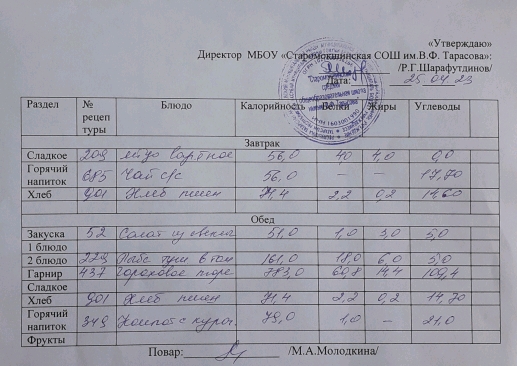 «Утверждаю»
Директор МБОУ «Старомокшинская СОШ им.В.Ф. Тарасова»:
/Р.Г.Шарафутдинов/
Дата: 25.04.23
Раздел № рецептуры Блюдо Калорийность Белки Жиры Углеводы
Завтрак
Сладкое 209 яйцо вареное 56,0 40 4,0 0,0
Горячий напиток 685 Чай с/с 56,0 – – 17,70
Хлеб 901 Хлеб пшен 71,4 2,2 0,2 14,60
Обед
Закуска 52 Салат из свеклы 51,0 1,0 3,0 5,0
1 блюдо
2 блюдо 229 Рыба туш в том 161,0 18,0 6,0 5,0
Гарнир 437 Гороховое пюре 783,0 60,8 14,4 109,4
Сладкое
Хлеб 901 Хлеб пшен 71,4 2,2 0,2 14,70
Горячий напиток 349 Компот с кураг. 79,0 1,0 – 21,0
Фрукты
Повар: /М.А.Молодкина/